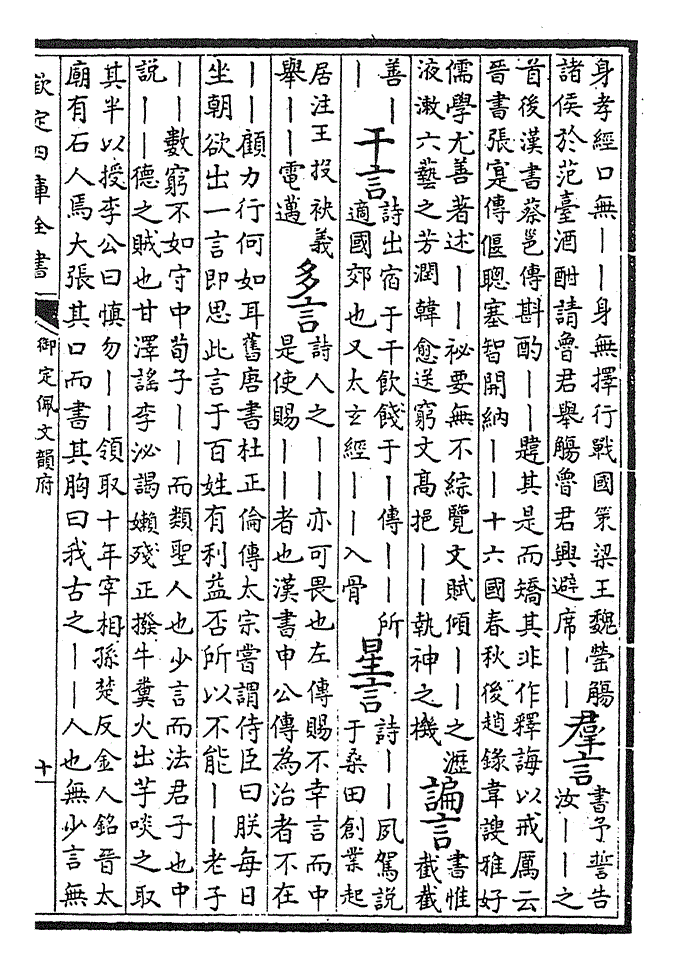 身孝經口無——身無擇行戰國策梁王魏罃觴
諸侯於范臺酒酣請魯君舉觴魯君興避席——
羣言
書予誓告
汝——之
首後漢書蔡邕傳斟酌——韙其是而矯其非作釋誨以戒厲云
晉書張寔傳偃聰塞智開納——十六國春秋後趙錄韋謏雅好
儒學尤善著述——祕要無不綜覽文賦傾——之瀝
液漱六藝之芳潤韓愈送窮文髙挹——執神之機
諞言
書惟
截截
善—
—
干言
詩出宿于干飲餞于—傳——所
適國郊也又太玄經——入骨
星言
詩——夙駕說
于桑田創業起
居注王投袂義
舉——電邁
多言
詩人之——亦可畏也左傳賜不幸言而中
是使賜——者也漢書申公傳為治者不在
——顧力行何如耳舊唐書杜正倫傳太宗嘗謂侍臣曰朕每日
坐朝欲出一言即思此言于百姓有利益否所以不能——老子
——數窮不如守中荀子——而類聖人也少言而法君子也中
說——德之賊也甘澤謠李泌謁嬾殘正撥牛糞火出芋啖之取
其半以授李公曰慎勿——領取十年宰相孫楚反金人銘晉太
廟有石人焉大張其口而書其胸曰我古之——人也無少言無
欽定四庫全書
御定佩文韻府
十